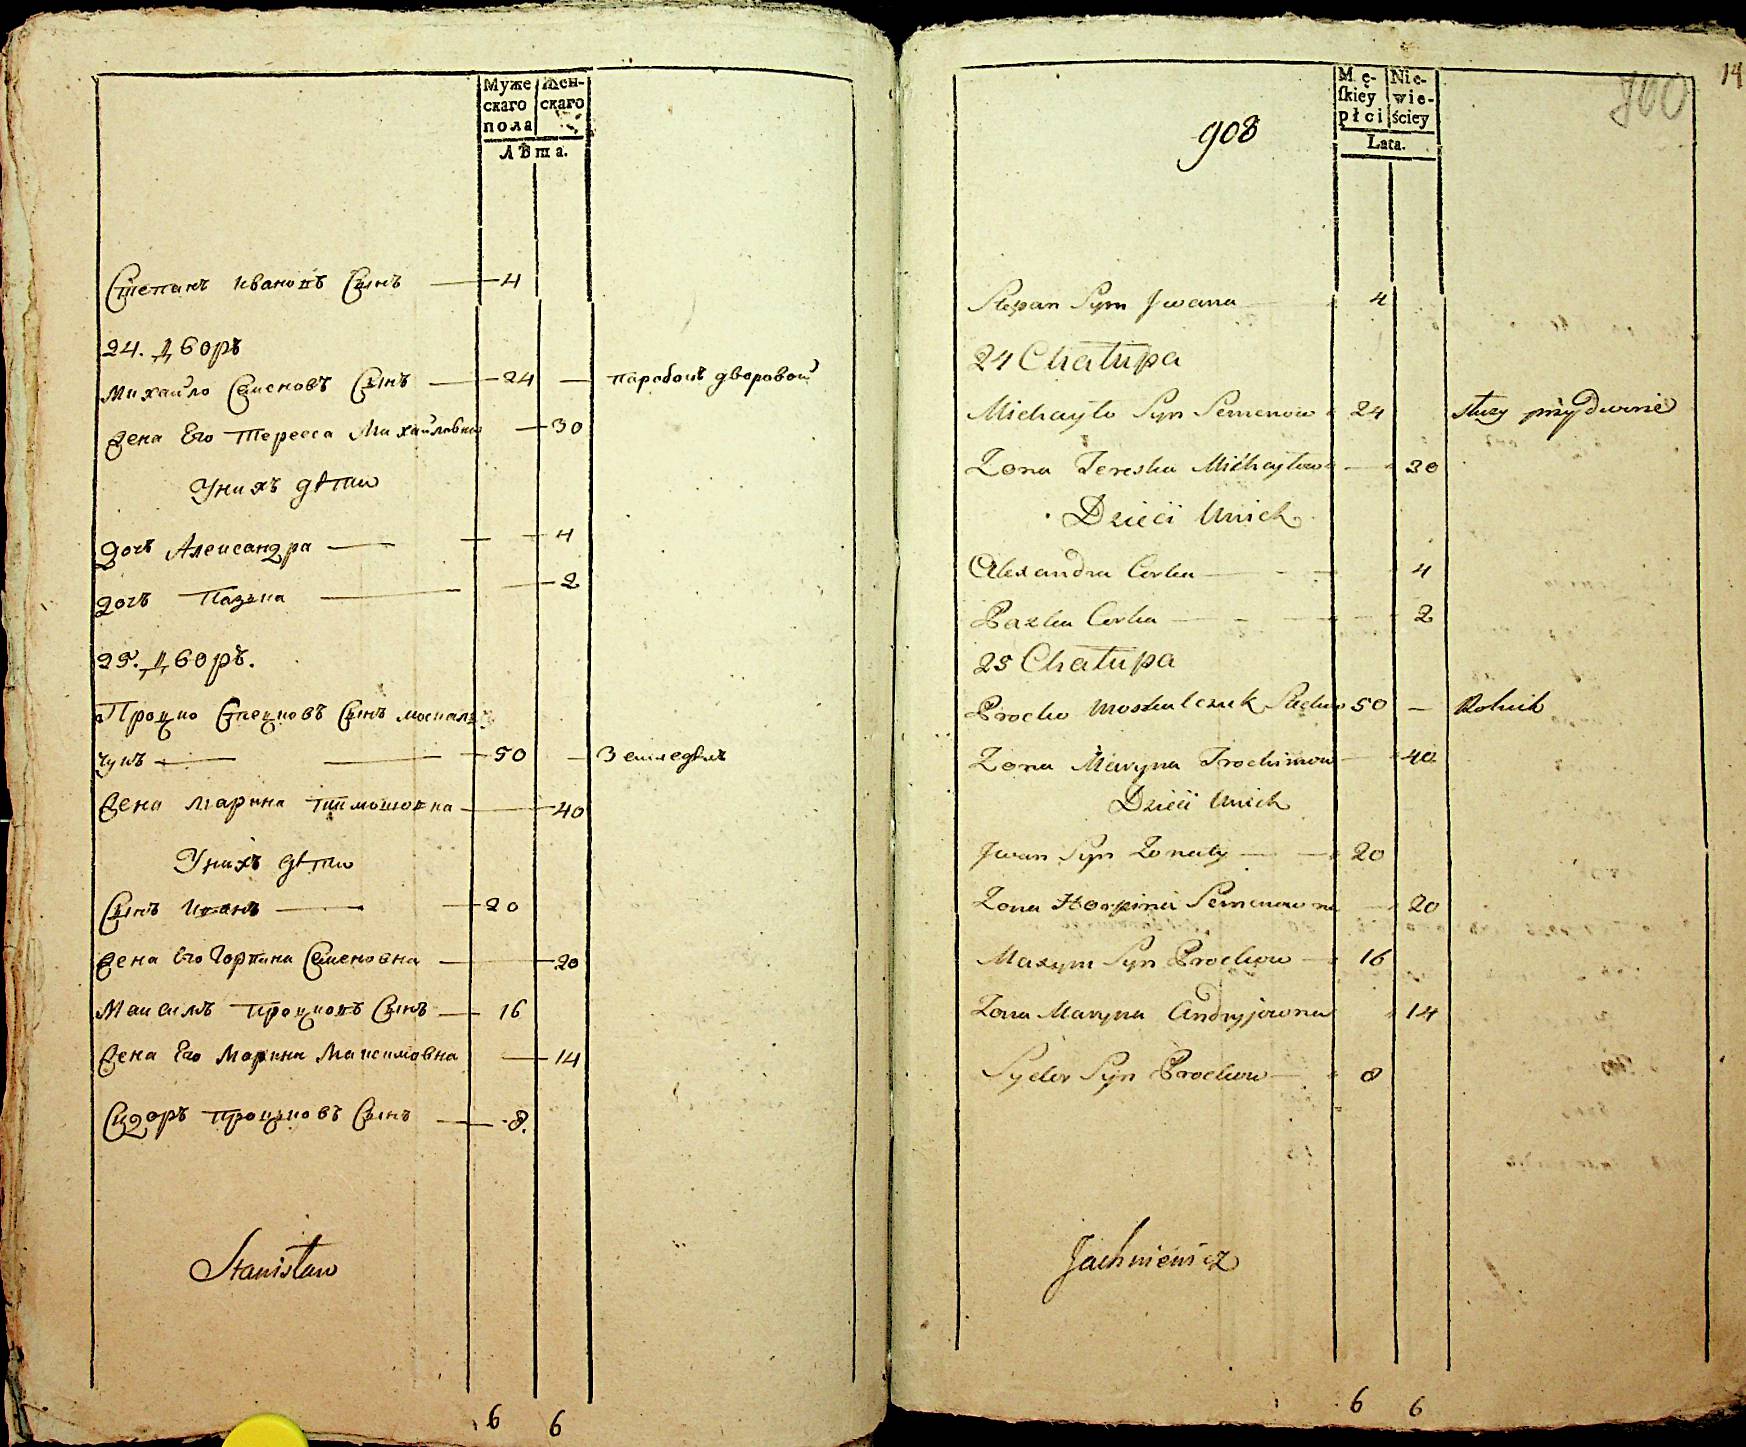 Муже
скаго
пола
Жен-
скаго
Лѣта.
Степанъ Ивановъ Сынъ 4
24. Дворъ
Михайло Семеновъ Сынъ 24 паробокъ дворовой
Жена Его Тересса Михайловна 30
У нихъ дѣти
Дочь Александра 4
Дочь Пазька 2
25. Дворъ.
Процко Стецковъ Сынъ москаль
чукъ 50 Земледѣлъ
Жена Марина Тимошовна 40
У нихъ дѣти
Сынъ Иванъ 20
Жена Его Горпина Семеновна 20
Максимъ Процковъ Сынъ 16
Жена Его Марина Максимовна 14
Сидоръ Процковъ Сынъ 8.
Stanisław
6 6
14
900
908
Mę-
skiey
płci
Nie-
wie-
ściey
Lata.
Stepan Syn Jwana 4
24 Chałupa
Michayło Syn Semenow 24 służy przy Dworie
Zona Tereska Michayłowa 30
Dzieci Unich
Alexandra Corka 4
Pazka Corka 2
25 Chałupa
Procko Moskalczuk 50 Rolnik
Zona Maryna Trochimow 40
Dzieci Unich
Jwan Syn Zonaty 20
Zona Horpina Semenowna 20
Maxym Syn Prockow 16
Zona Maryna Andryjowna 14
Sydor Syn Prockow 8
Jachniewicz
6 6